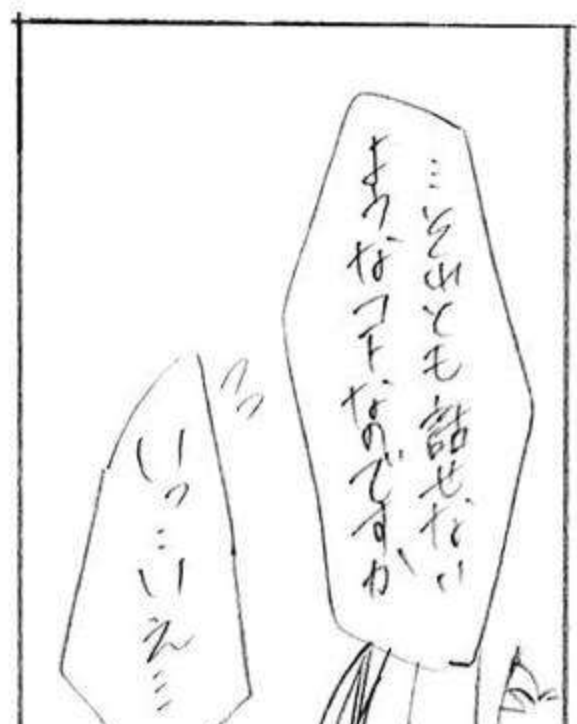 …それとも話せない
ようなコトなのですか
いっ…いえ……